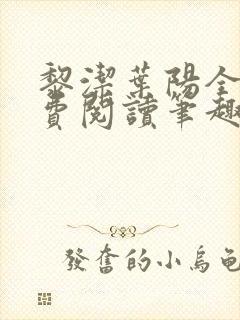 黎潔葉陽全
費閱讀筆趣
發奮的小烏龜